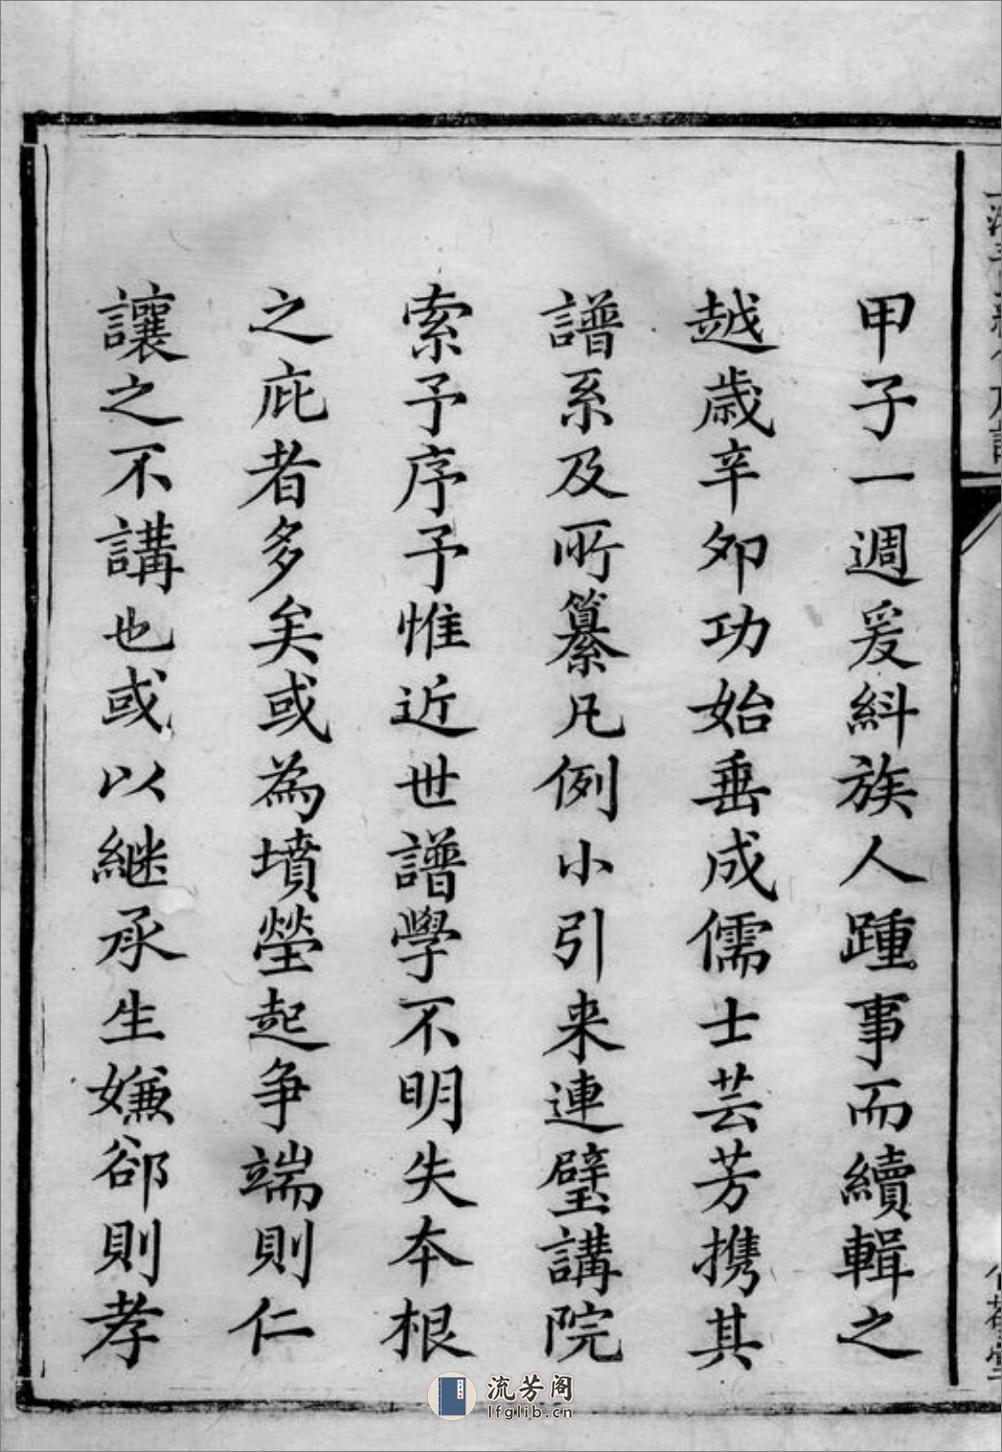 甲子一週爰糾族人踵事而續輯之
越歲辛夘功始垂成儒士芸芳携其
譜系及所纂凡例小引来連璧講院
索予序予惟近世譜學不明失本根
之庇者多矣或為墳塋起争端則仁
讓之不講也或以継承生嫌郤則孝
流芳阁
lfglib.cn